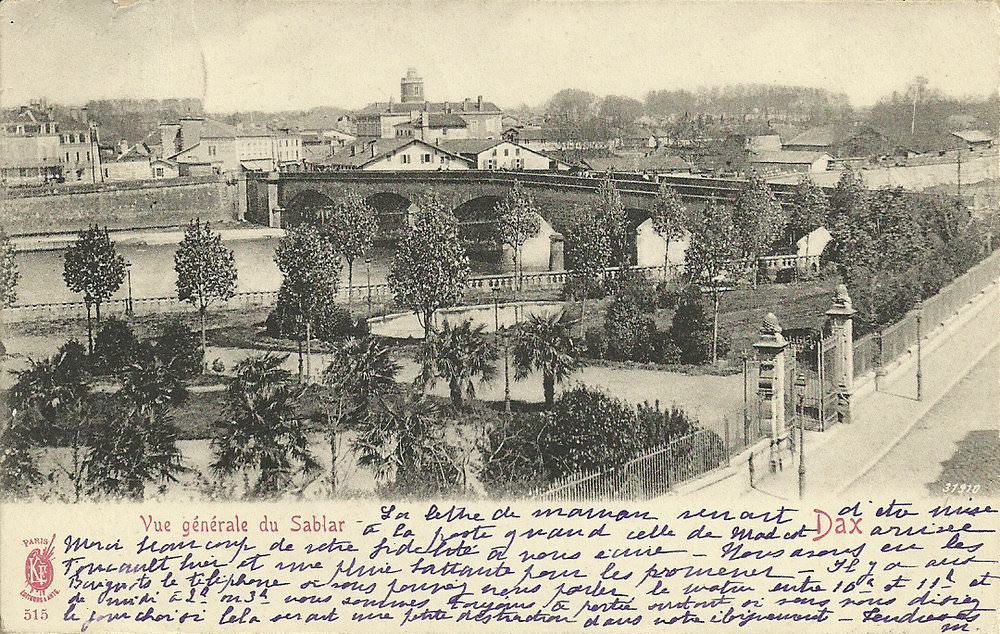 31970
Vue générale du Sablar
Dax
PARIS
KF
EDITEURS D'ART
515
La lettre de maman venait d'être mise
à la poste quand celle de Mad est arrivée
Merci beaucoup de votre fidélité à nous écrire - Nous avons eu les
Foucault hier et une pluie battante pour les promener - Il y a aux
le téléphone si vous pouvez nous parler, le matin entre 10h et 11h et
de midi à 2h nous sommes toujours à portée surtout si vous nous disiez
le jour choisi Cela serait une petite distraction dans notre éloignement - Tendresses
M.